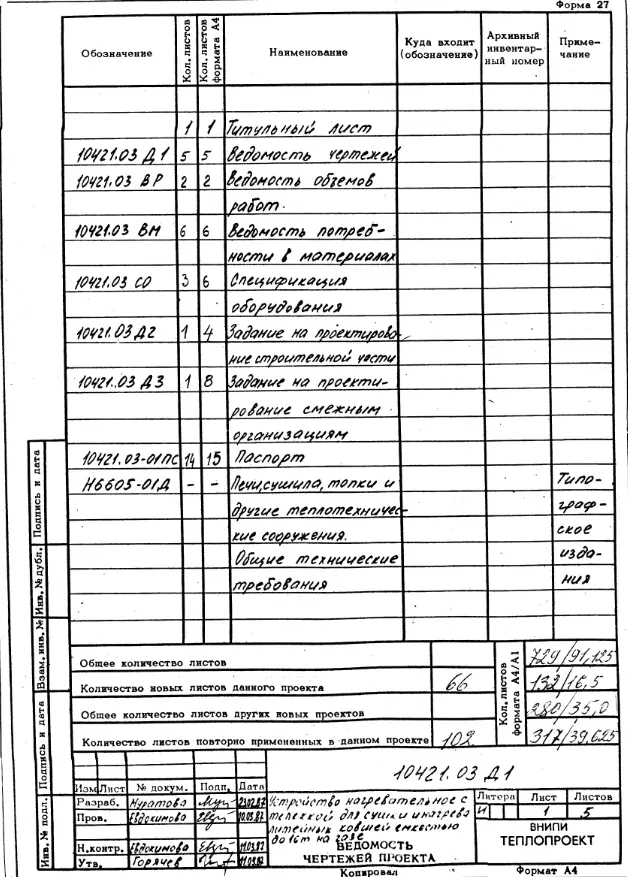 Форма 27
Обозначение Кол. листов Кол. листов формата А4 Наименование Куда входит (обозначение) Архивный инвентарный номер Примечание
1 1 Титульный лист
10421.03 Д1 5 5 Ведомость чертежей
10421.03 ВР 2 2 Ведомость объемов
работ.
10421.03 ВМ 6 6 Ведомость потреб-
ности в материалах
10421.03 СО 3 6 Спецификация
оборудования
10421.03 Д2 1 4 Задание на проектирова-
ние строительной части
10421.03 Д3 1 8 Задание на проекти-
рование смежным
организациям
10421.03-01ПС 14 15 Паспорт
Н6605-01Д - - Печи, сушила, топки и Типо-
другие теплотехничес- граф-
кие сооружения. ское
Общие технические изда-
требования ния
Общее количество листов 729/91,125
Количество новых листов данного проекта 66 132/16,5
Общее количество листов других новых проектов 280/35,0
Количество листов повторно примененных в данном проекте 102 317/39,625
Кол. листов формата А4/А1
10421.03 Д1
Изм Лист № докум. Подп. Дата
Разраб. Муратова 23.02.87
Пров. Евдокимова 10.03.87
Н.контр. Евдокимова 11.03.87
Утв. Горячев
Устройство нагревательное с
тележкой для сушки и нагрева
литейных ковшей емкостью
до 16т на газе
ВЕДОМОСТЬ
ЧЕРТЕЖЕЙ ПРОЕКТА
Литера Лист Листов
И 1 5
ВНИПИ
ТЕПЛОПРОЕКТ
Копировал Формат А4
Подпись и дата
Инв. № дубл.
Взам. инв. №
Подпись и дата
Инв. № подл.